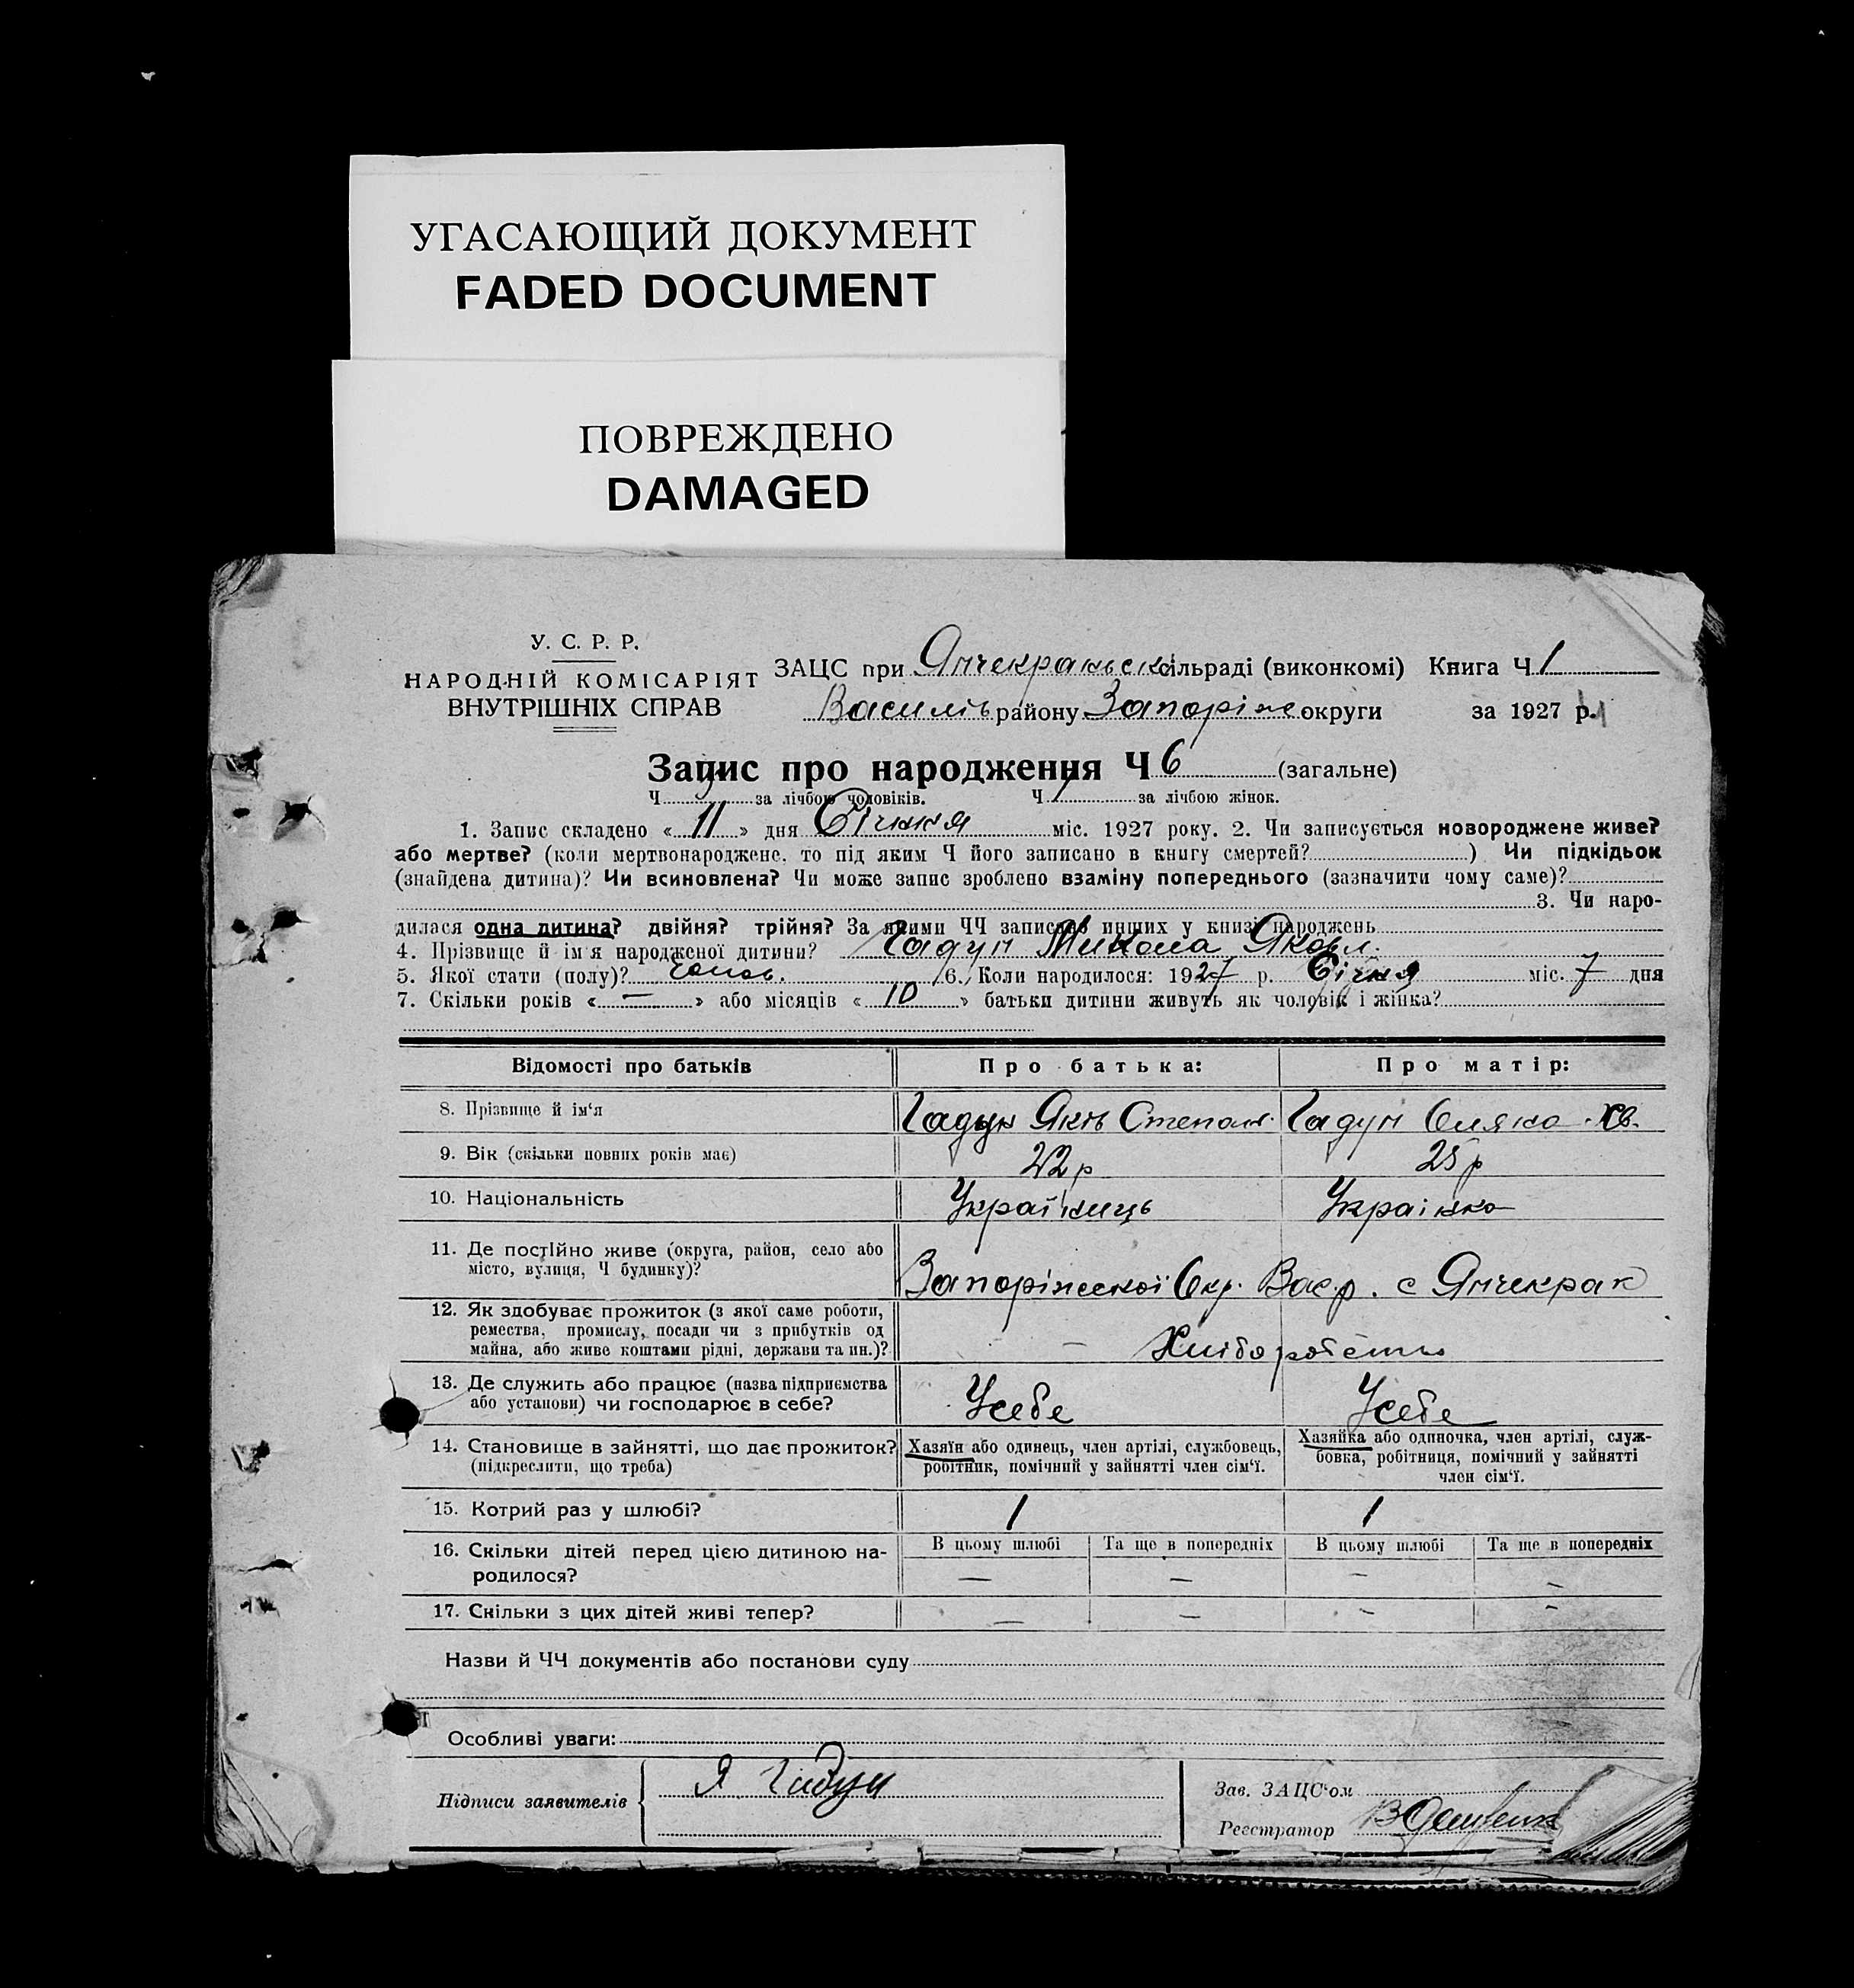 УГАСАЮЩИЙ ДОКУМЕНТ
FADED DOCUMENT
ПОВРЕЖДЕНО
DAMAGED
У. С. Р. Р.
НАРОДНІЙ КОМІСАРІЯТ
ВНУТРІШНІХ СПРАВ
ЗАЦС при Янчекракськ сільраді (виконкомі) Книга Ч 1
Василів району Запоріж округи за 1927 р.
Запис про народження Ч 6 (загальне)
Ч за лічбою чоловіків. Ч за лічбою жінок.
1. Запис складено « 11 » дня Січня міс. 1927 року. 2. Чи записується новороджене живе?
або мертве? (коли мертвонароджене, то під яким Ч його записано в книгу смертей? ) Чи підкідьок
(знайдена дитина)? Чи всиновлена? Чи може запис зроблено взаміну попереднього (зазначити чому саме)?
3. Чи наро-
дилася одна дитина? двійня? трійня? За якими ЧЧ записано инших у книзі народжень
4. Прізвище й ім'я народженої дитини? Гадун Микола Яковл.
5. Якої стати (полу)? чолов. 6. Коли народилося: 1927 р. Січня міс. 7 дня
7. Скільки років « — » або місяців « 10 » батьки дитини живуть як чоловік і жінка?
Відомості про батьків Про батька: Про матір:
8. Прізвище й ім'я Гадун Яків Степан. Гадун Оляна Хв.
9. Вік (скільки повних років має) 22 р 25 р
10. Національність Українець Українка
11. Де постійно живе (округа, район, село або
місто, вулиця, Ч будинку)? Запоріжської Окр. Вас р. с Янчекрак
12. Як здобуває прожиток (з якої саме роботи,
ремества, промислу, посади чи з прибутків од
майна, або живе коштами рідні, держави та ин.)? — Хліборобство
13. Де служить або працює (назва підприємства
або установи) чи господарює в себе? Усебе Усебе
14. Становище в зайнятті, що дає прожиток?
(підкреслити, що треба)
Хазяїн або одинець, член артілі, службовець,
робітник, помічний у зайнятті член сім'ї.
Хазяйка або одиночка, член артілі, служ-
бовка, робітниця, помічний у зайнятті
член сім'ї.
15. Котрий раз у шлюбі? 1 1
16. Скільки дітей перед цією дитиною на-
родилося?
В цьому шлюбі Та ще в попередніх В цьому шлюбі Та ще в попередніх
— — — —
17. Скільки з цих дітей живі тепер? — — — —
Назви й ЧЧ документів або постанови суду
Особливі уваги:
Підписи заявителів Я Гадун
Зав. ЗАЦС'ом
Реєстратор